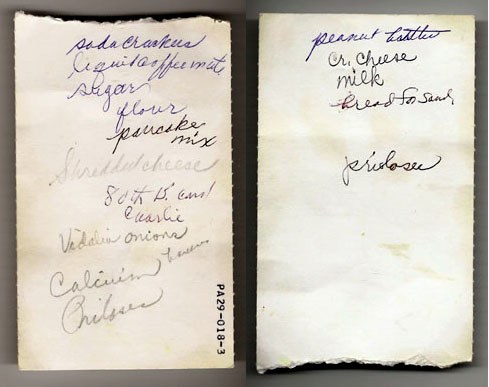 soda crackers
liquid coffee mate
sugar
flour
pancake
mix
Shredded cheese
80th B. card
Charlie
Vidalia onions
Calcium
Prilosec
PA29-018-3
peanut butter
cr. cheese
milk
bread for sand
prilosec